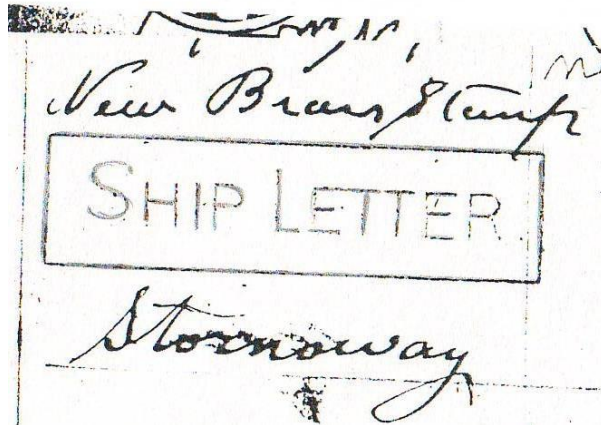 New Brass Stamp
SHIP LETTER
Stornoway